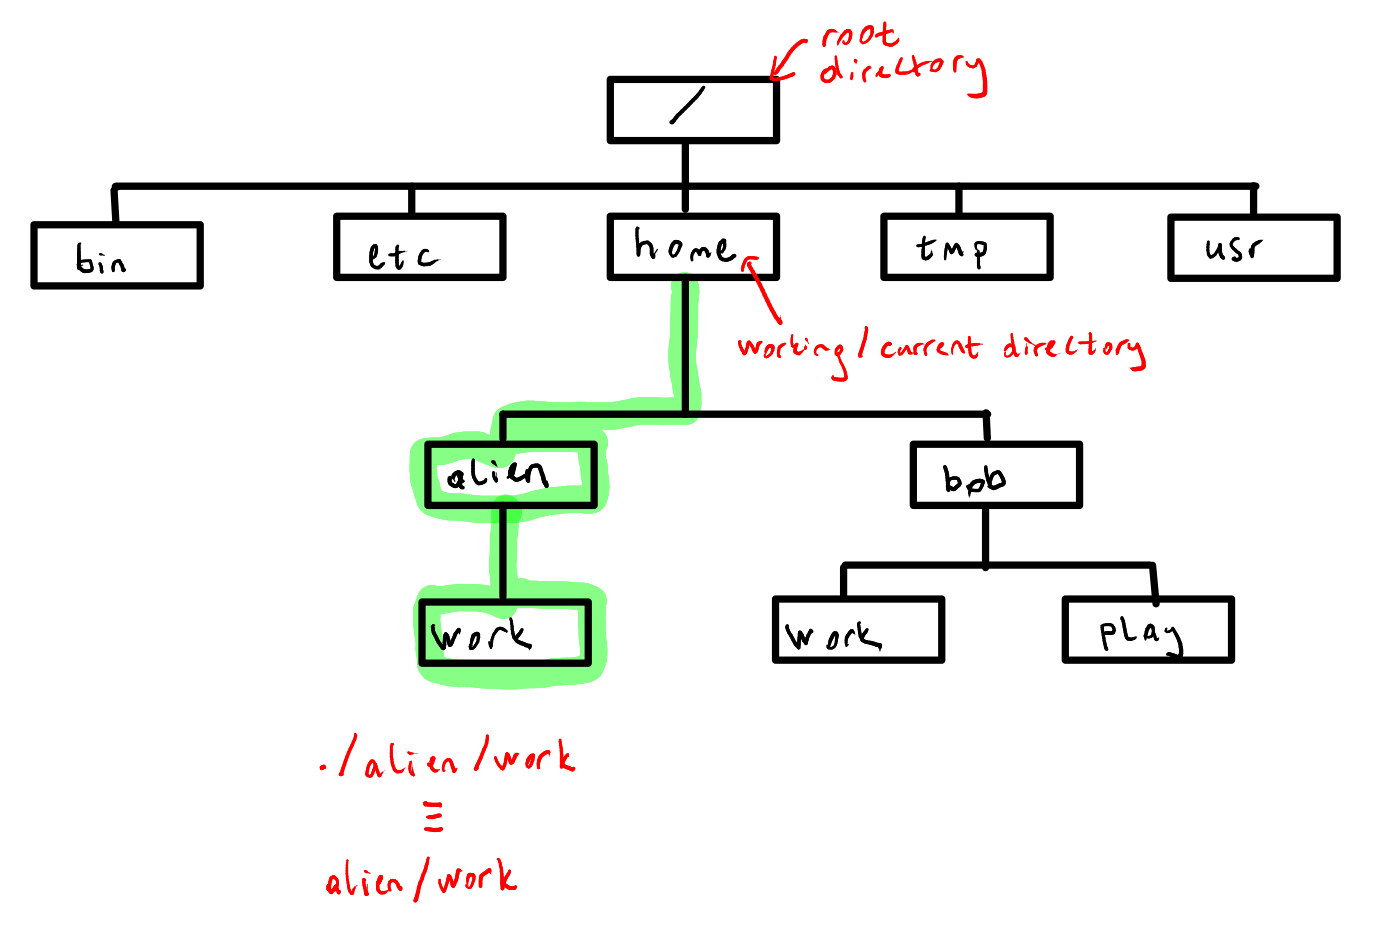 root
directory
/
bin
etc
home
tmp
usr
working/current directory
alien
bob
work
work
play
./alien/work
≡
alien/work